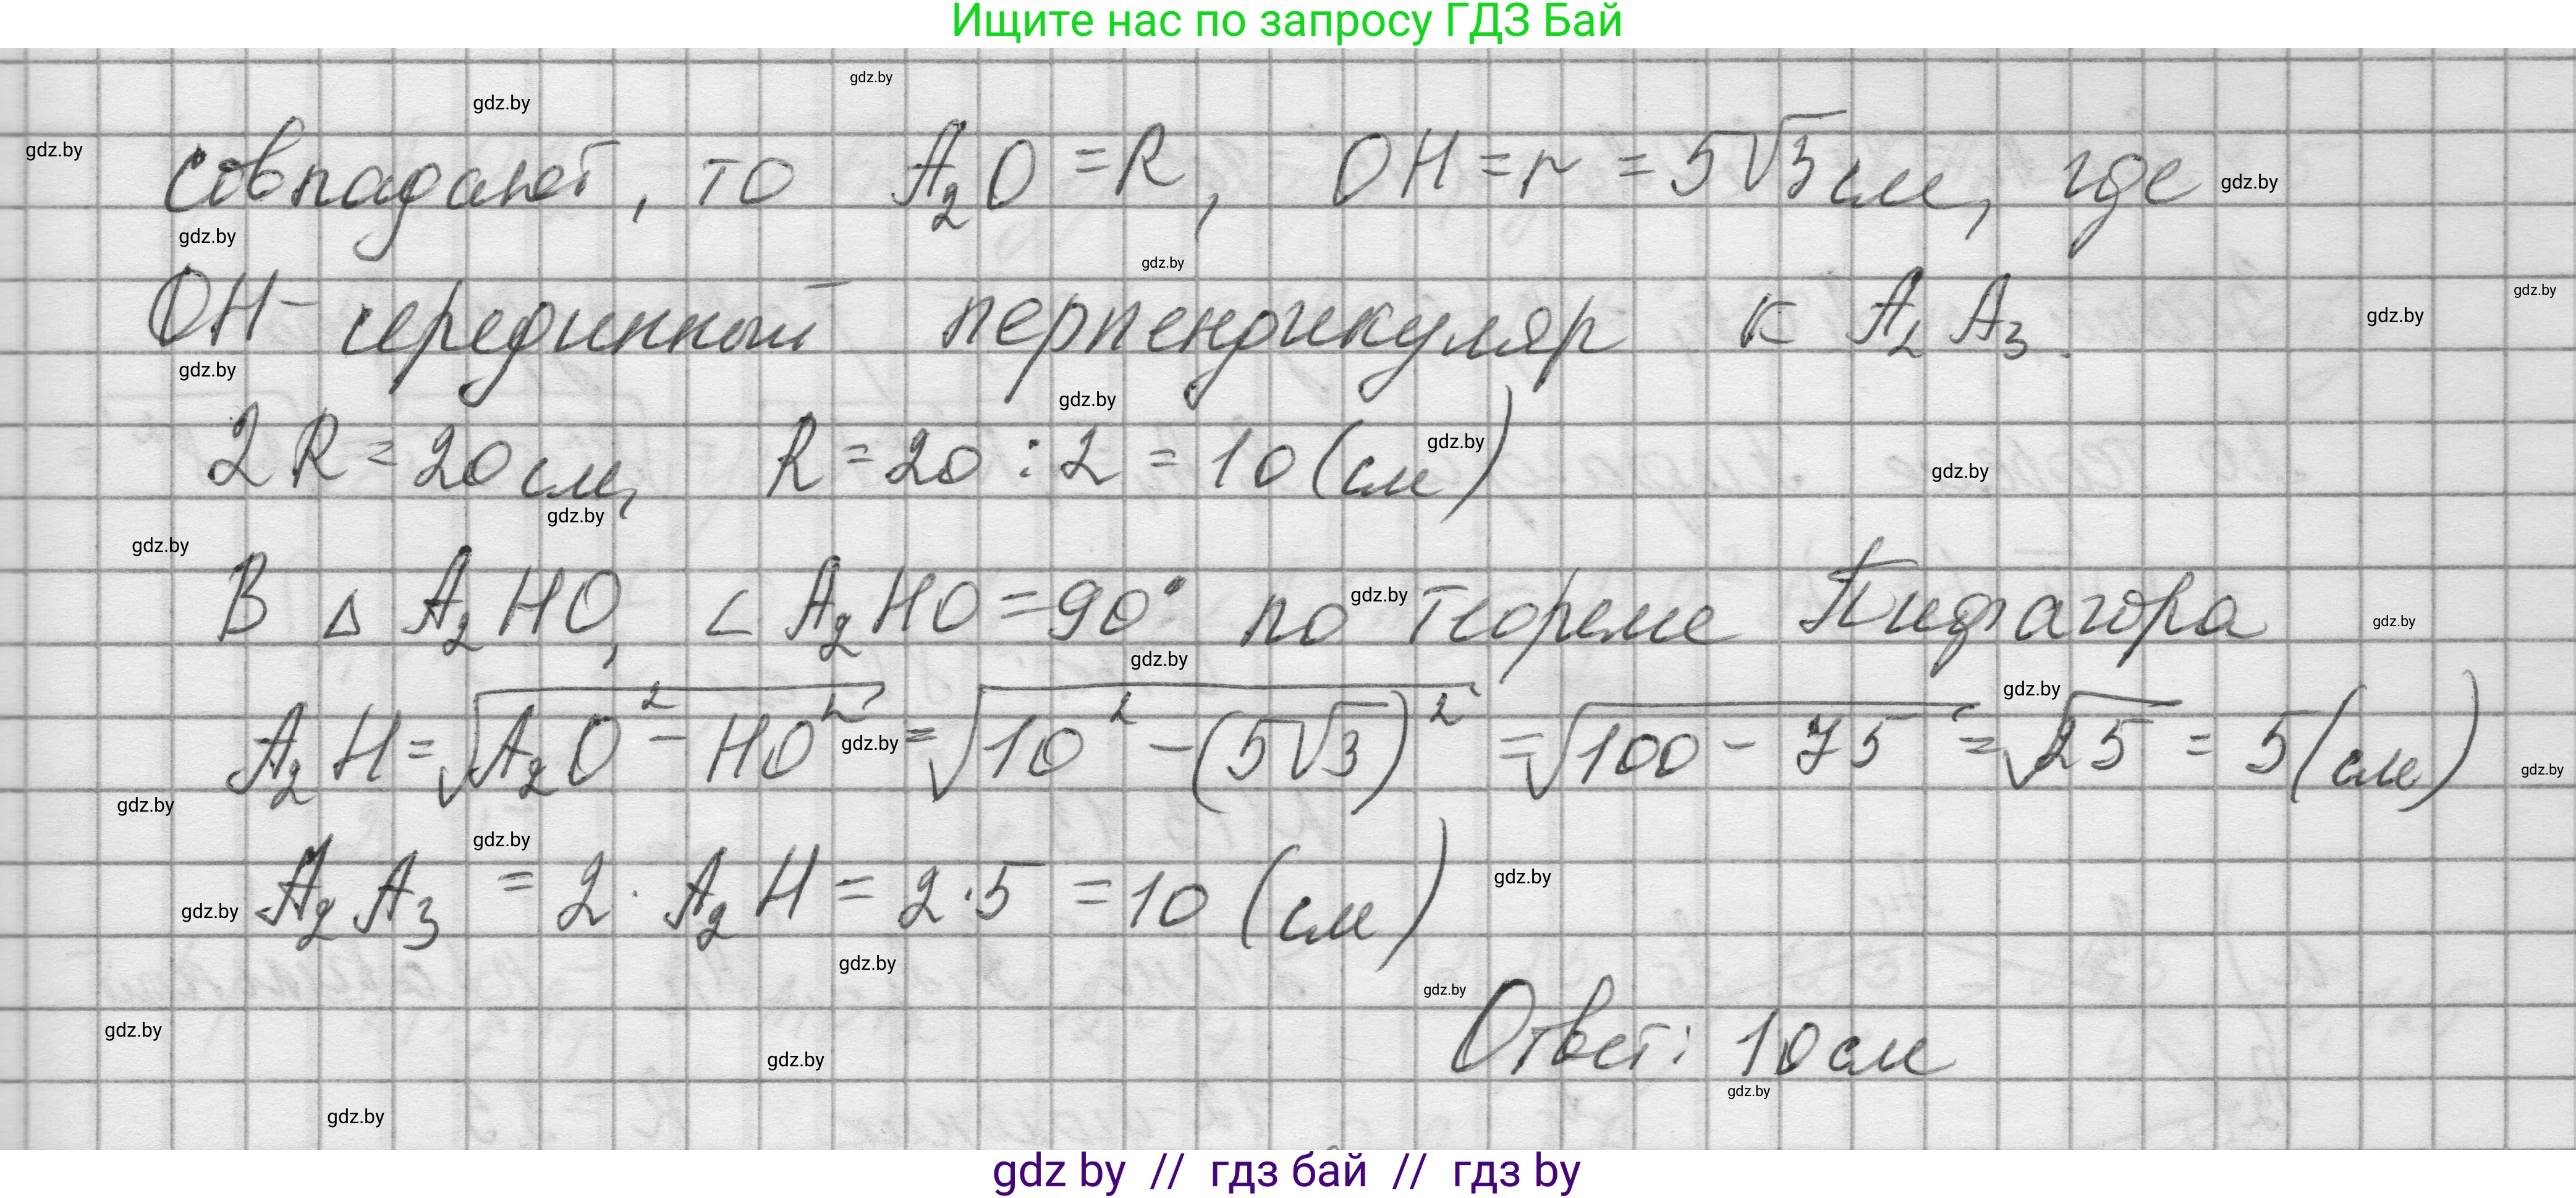 Ищите нас по запросу ГДЗ Бай
gdz.by
gdz.by
gdz.by
совпадают, то A₂O = R, OH = r = 5√3 см, где
gdz.by
gdz.by
gdz.by
OH - серединный перпендикуляр к A₂A₃.
gdz.by
gdz.by
gdz.by
gdz.by
2R = 20 см, R = 20 : 2 = 10 (см)
gdz.by
gdz.by
gdz.by
gdz.by
В △ A₂HO, ∠ A₂HO = 90° по теореме Пифагора
gdz.by
gdz.by
gdz.by
gdz.by
A₂H = √(A₂O² - HO²) = √(10² - (5√3)²) = √(100 - 75) = √25 = 5 (см)
gdz.by
gdz.by
gdz.by
gdz.by
A₂A₃ = 2 · A₂H = 2 · 5 = 10 (см)
gdz.by
gdz.by
gdz.by
gdz.by
Ответ: 10 см
gdz.by
gdz.by
gdz.by
gdz.by
gdz by // гдз бай // гдз by